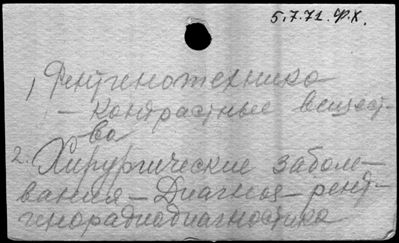 5.7.71. Ф.Х.
1) Рентгенотехника
– контрастные вещест-
ва
2. Хирургические заболе-
вания – Диагноз – рент-
генорадиодиагностика